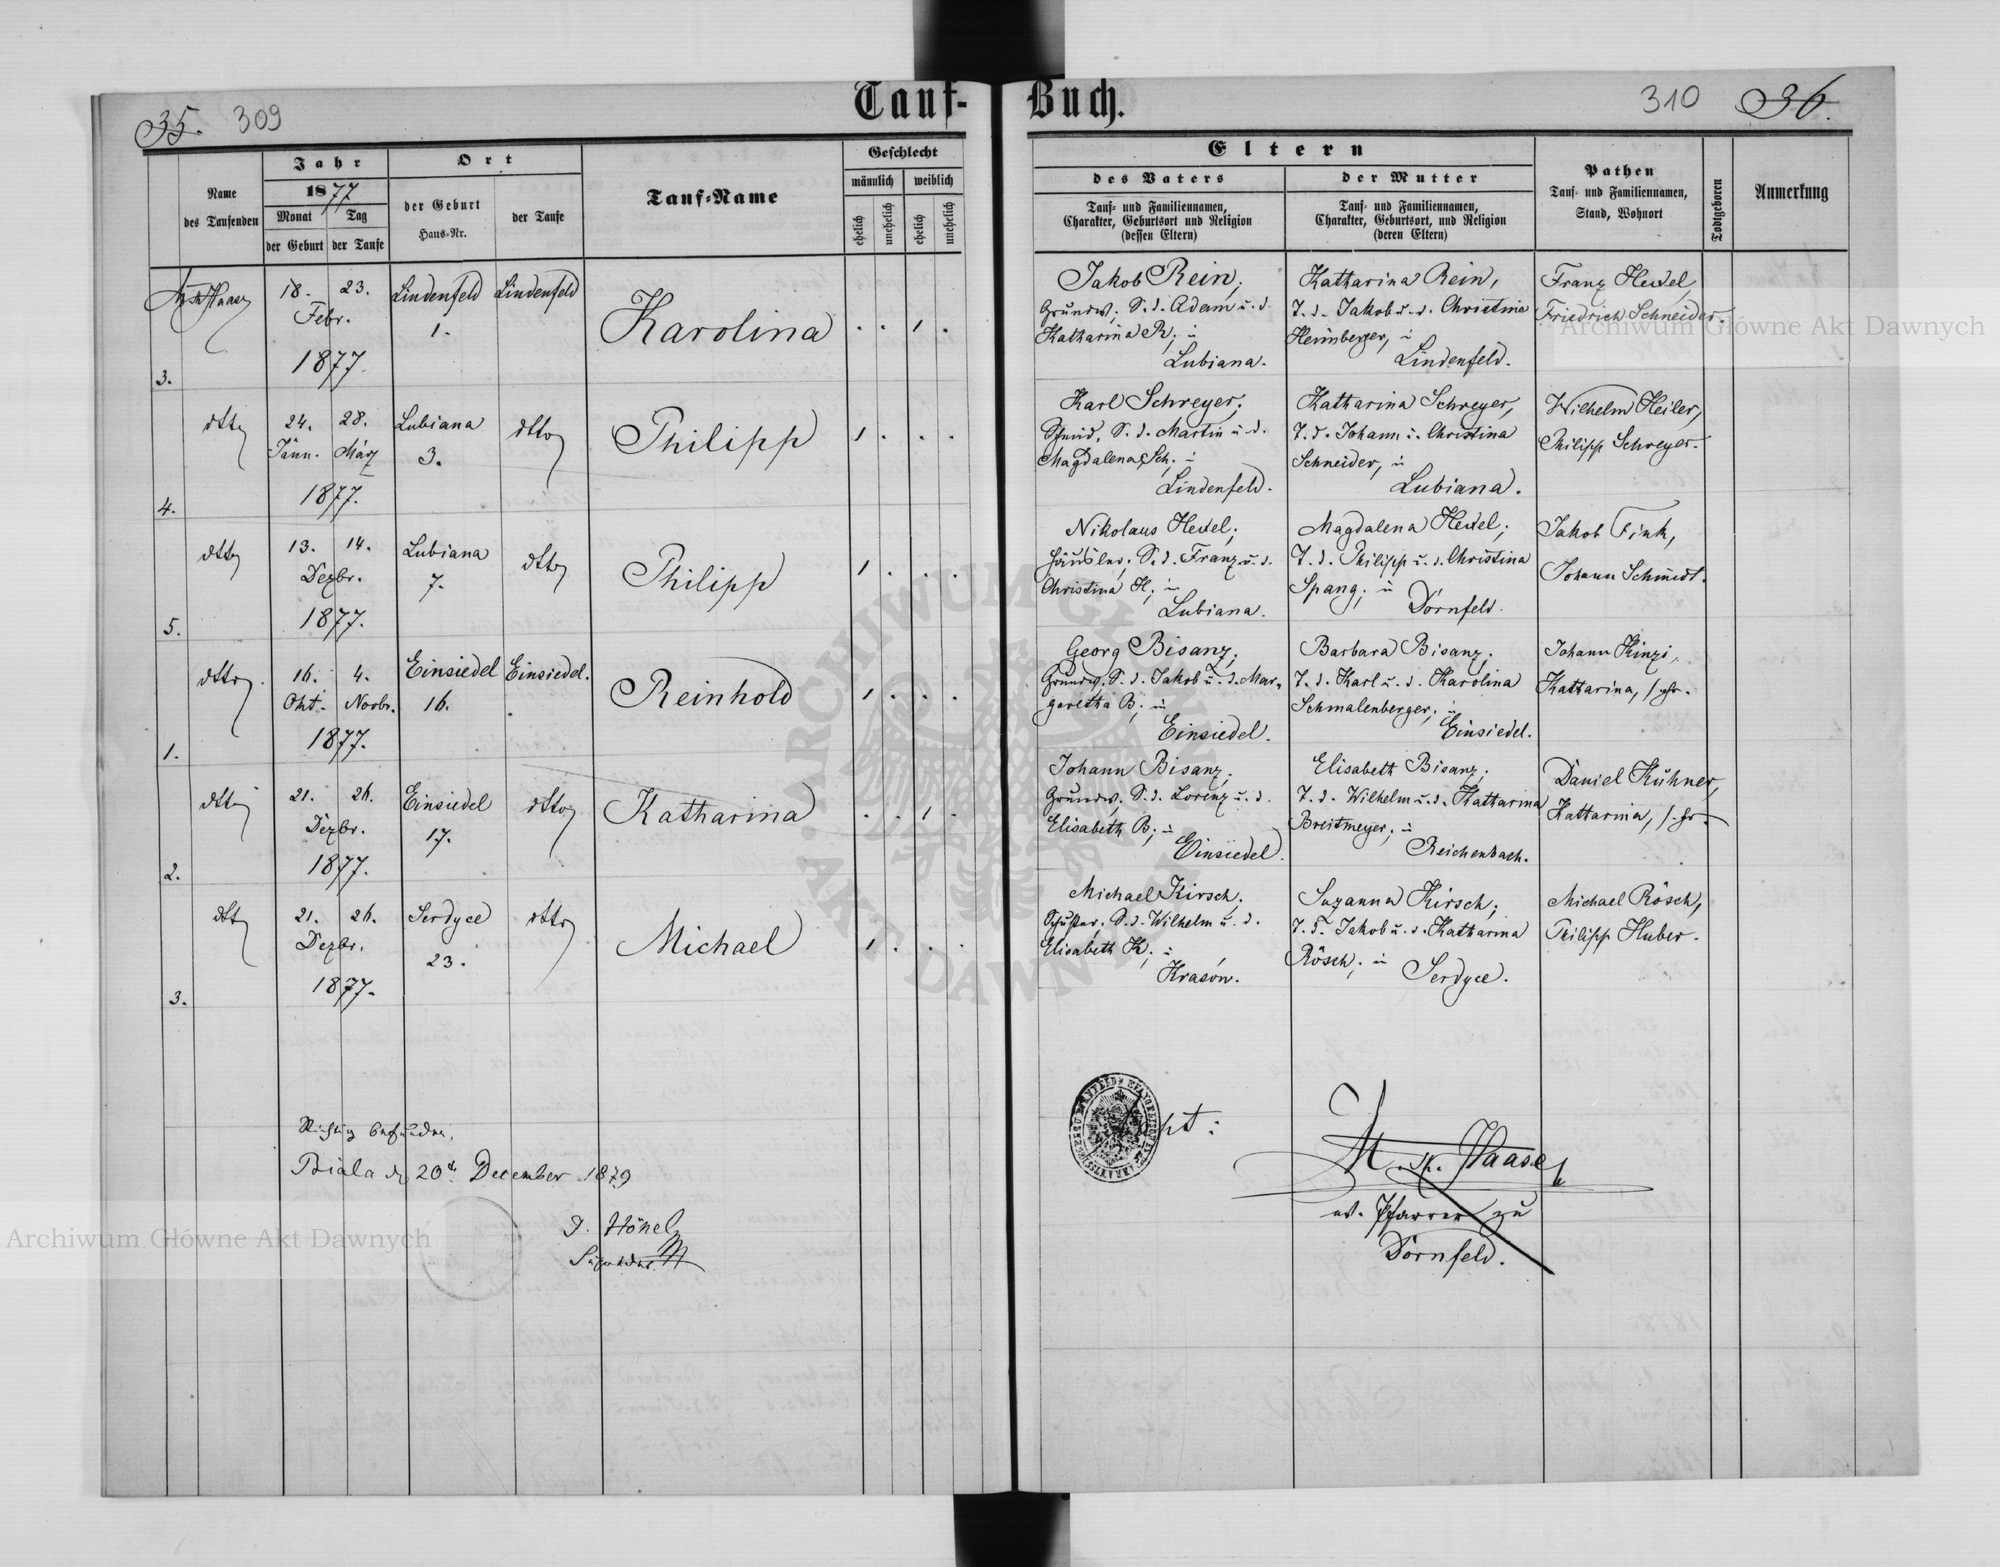 Tauf-
Buch.
35. 309
310 36.
Name
des Taufenden
Jahr
1877
Monat Tag
der Geburt der Taufe
Ort
der Geburt
Haus-Nr.
der Taufe
Tauf-Name
Geschlecht
männlich weiblich
ehelich unehelich ehelich unehelich
Eltern
des Vaters
Tauf- und Familiennamen,
Charakter, Geburtsort und Religion
(dessen Eltern)
der Mutter
Tauf- und Familiennamen,
Charakter, Geburtsort, und Religion
(deren Eltern)
Pathen
Tauf- und Familiennamen,
Stand, Wohnort
Todtgeboren
Anmerkung
3.
Haase
18. 23.
Febr.
1877.
Lindenfeld
1.
Lindenfeld
Karolina
. . 1 .
Jakob Rein,
Grundw., S. d. Adam u. d.
Katharina R; in
Lubiana.
Katharina Rein,
T. d. Jakob u. d. Christine
Heimberger, in
Lindenfeld.
Franz Hexel,
Friedrich Schneider.
4.
dtto
24. 28.
Jänn. März
1877.
Lubiana
3.
dtto
Philipp
1 . . .
Karl Schreyer,
Schmid, S. d. Martin u. d.
Magdalena Sch; in
Lindenfeld.
Katharina Schreyer,
T. d. Johann u. Christina
Schneider, in
Lubiana.
Wilhelm Heiler,
Philipp Schreyer.
5.
dtto
13. 14.
Dezbr.
1877.
Lubiana
7.
dtto
Philipp
1 . . .
Nikolaus Hexel;
Häusler; S. d. Franz u. d.
Christina H; in
Lubiana.
Magdalena Hexel;
T. d. Philipp u. d. Christina
Spang; in
Dornfeld.
Jakob Fink,
Johann Schmidt.
1.
dtto
16. 4.
Okt. Novbr.
1877.
Einsiedel
16.
Einsiedel.
Reinhold
1 . . .
Georg Bisanz;
Grundw. S. d. Jakob u. d. Mar-
garetha B; in
Einsiedel.
Barbara Bisanz;
T. d. Karl u. d. Karolina
Schmalenberger; in
Einsiedel.
Johann Kinzi,
Katharina,
2.
dtto
21. 26.
Dezbr.
1877.
Einsiedel
17.
dtto
Katharina
. . 1 .
Johann Bisanz;
Grundw, S. d. Lorenz u. d.
Elisabeth B; in
Einsiedel.
Elisabeth Bisanz;
T. d. Wilhelm u. d. Katharina
Breitmeyer; in
Reichenbach.
Daniel Kühner,
Katharina,
3.
dtto
21. 26.
Dezbr.
1877.
Serdyce
23.
dtto
Michael
1 . . .
Michael Kirsch;
Schuster; S. d. Wilhelm u. d.
Elisabeth K; in
Krasów.
Suzanna Kirsch;
T. d. Jakob u. d. Katharina
Rösch; in
Serdyce.
Michael Rösch,
Philipp Huber.
Richtig befunden.
Biala d. 20. December 1879
J. Hönel
Haase
ev. Pfarrer zu
Dornfeld.
Archiwum Główne Akt Dawnych
Archiwum Główne Akt Dawnych